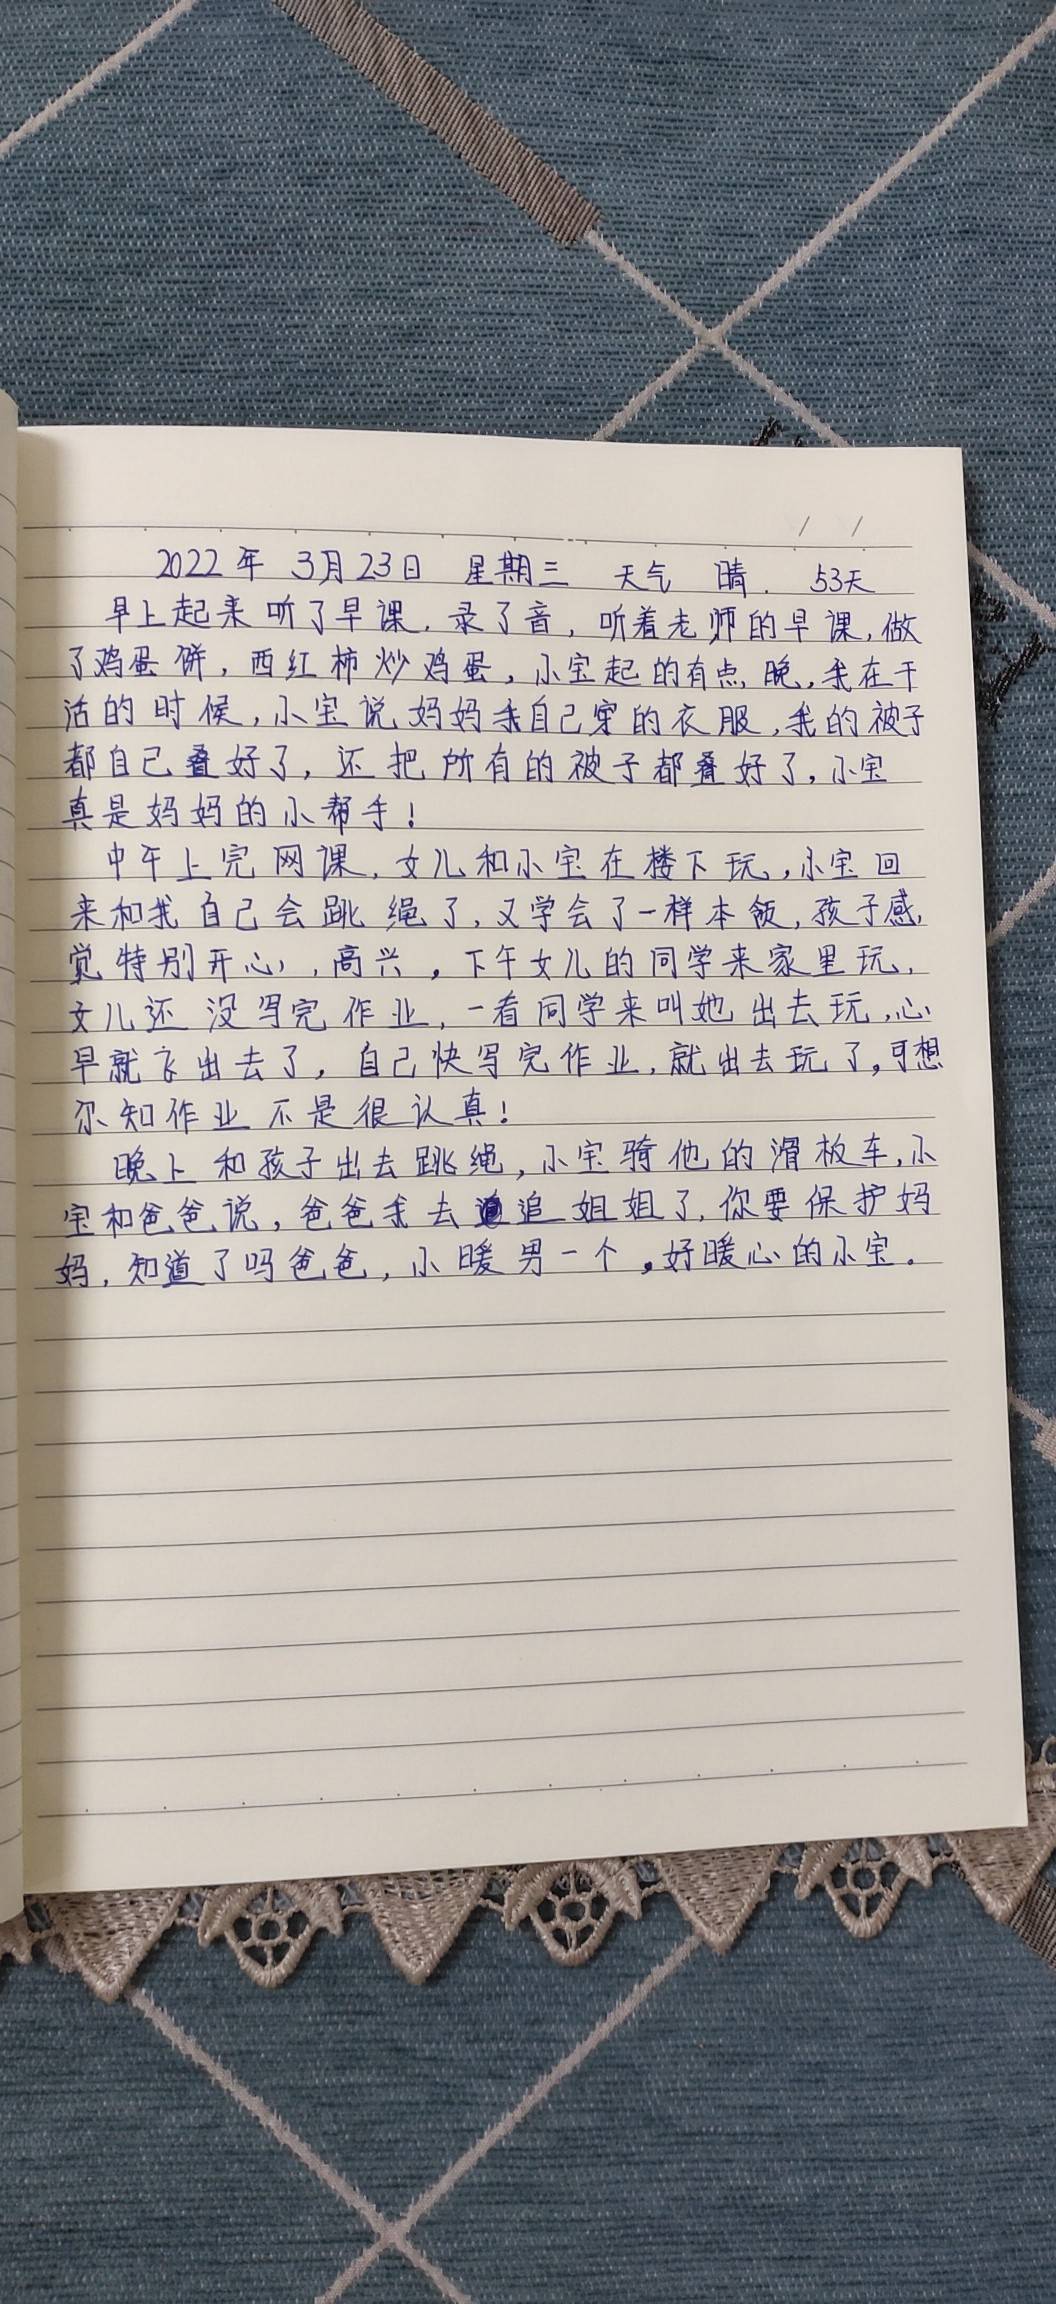 / /
2022年 3月23日 星期三 天气 晴. 53天
早上起来听了早课,录了音,听着老师的早课,做
了鸡蛋饼,西红柿炒鸡蛋,小宝起的有点晚,我在干
活的时候,小宝说妈妈我自己穿的衣服,我的被子
都自己叠好了,还把所有的被子都叠好了,小宝
真是妈妈的小帮手!
中午上完网课,女儿和小宝在楼下玩,小宝回
来和我自己会跳绳了,又学会了一样本领,孩子感
觉特别开心,高兴。下午女儿的同学来家里玩,
女儿还没写完作业,一看同学来叫她出去玩,心
早就飞出去了,自己快写完作业,就出去玩了,可想
尔知作业不是很认真!
晚上和孩子出去跳绳,小宝骑他的滑板车,小
宝和爸爸说,爸爸我去追姐姐了,你要保护妈
妈,知道了吗爸爸,小暖男一个,好暖心的小宝.